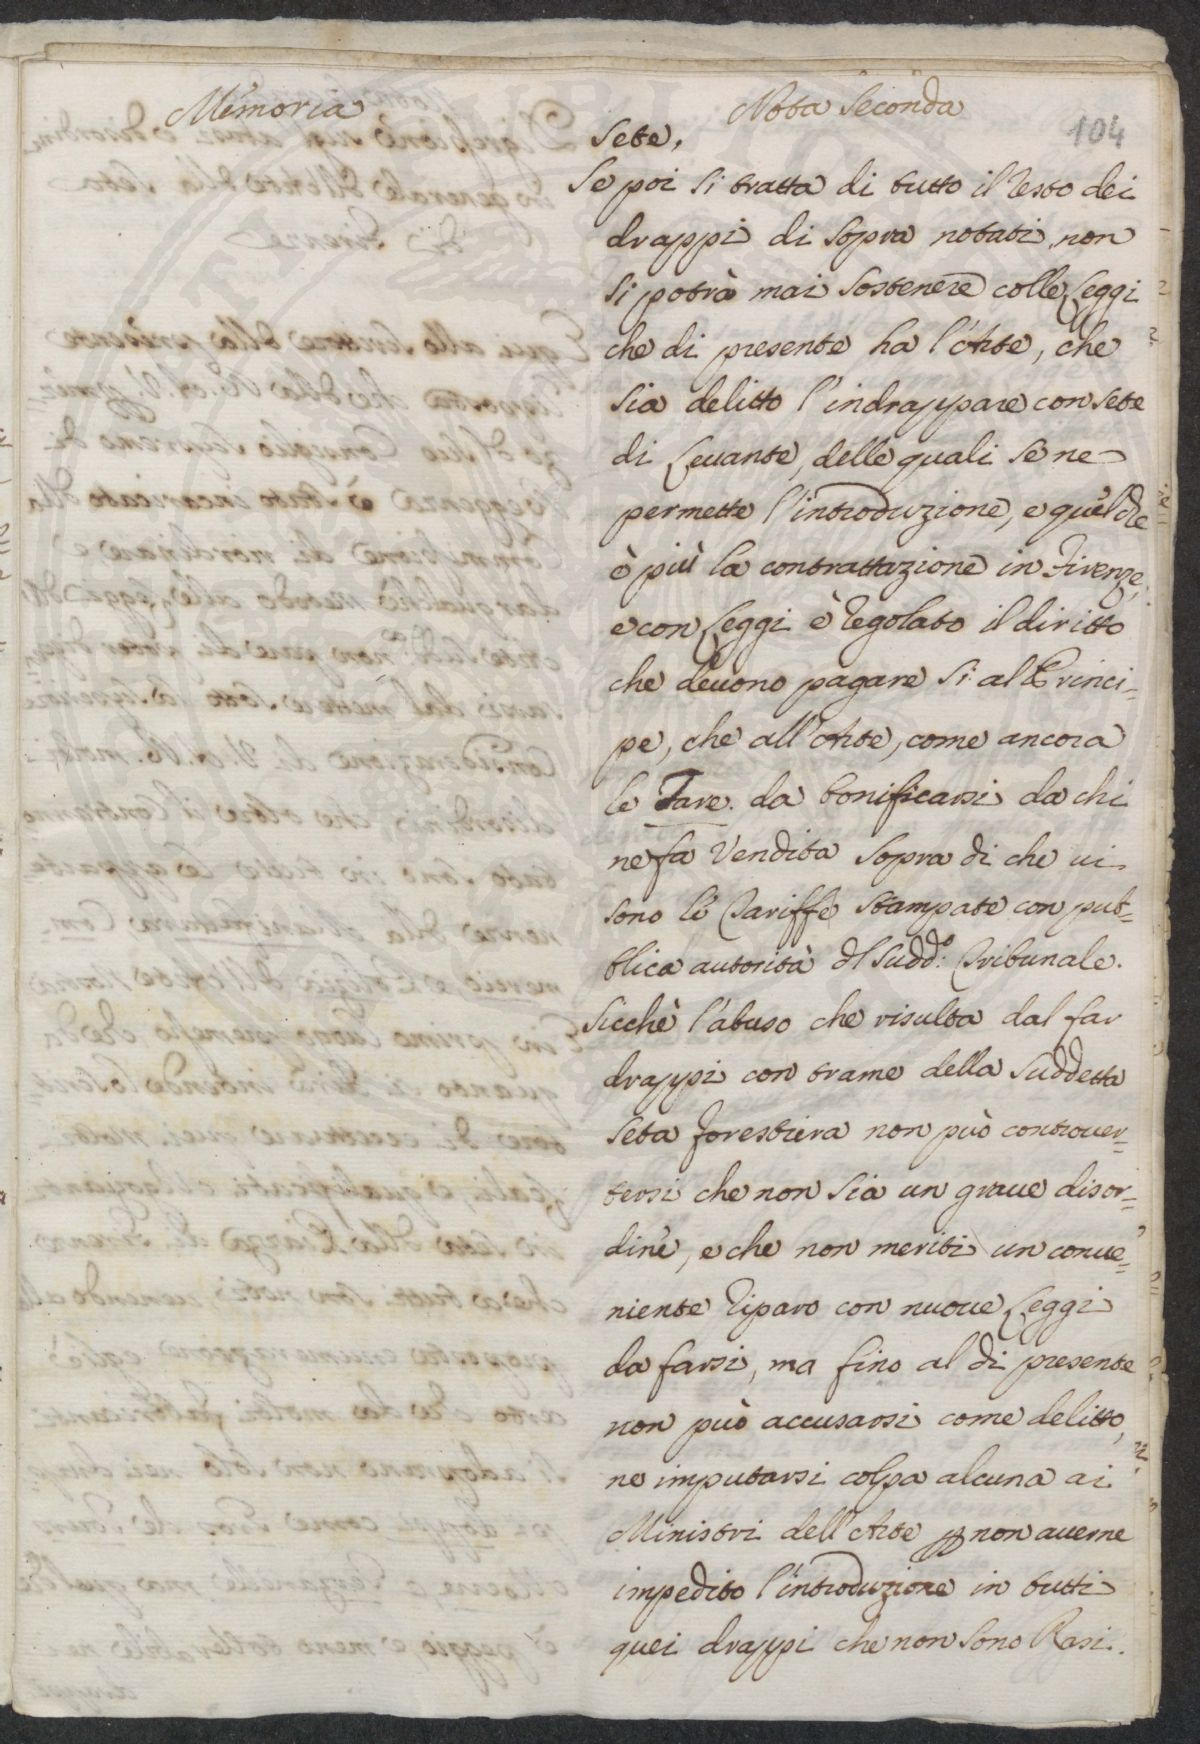 Memoria
Nota Seconda
104
Sete,
Se poi si tratta di tutto il resto dei
drappi di sopra notati, non
si potrà mai sostenere colle Leggi
che di presente ha l'Arte, che
sia delitto l'indrappare con sete
di Levante, delle quali se ne
permette l'introduzione, e quel che
è più la contrattazione in Firenze,
e con Leggi è regolato il diritto
che devono pagare sì al Princi=
pe, che all'Arte, come ancora
le Tare. da bonificarsi da chi
ne fa Vendita sopra di che vi
sono le Tariffe stampate con pub=
blica autorità dl Sudd.º Tribunale.
Sicchè l'abuso che risulta dal far
drappi con trame della Suddetta
seta forestiera non può controver=
tersi che non sia un grave disor=
dine, e che non meriti un conve=
niente riparo con nuove Leggi
da farsi, ma fino al dì presente
non può accusarsi come delitto,
ne imputarsi colpa alcuna ai
Ministri dell'Arte p non averne
impedito l'introduzione in tutti
quei drappi che non sono Rasi.